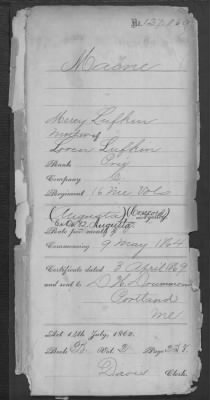 No. 127,860
Maine
Mercy Lufkin
Mother of
Loren Lufkin
Rank Priv
Company C
Regiment 16 Me Vols
(Augusta) (Concord)
Augusta
Rate per month, 8
Commencing 9 May 1864
Certificate dated 3 April 1869
and sent to D H Drummond
Portland
Me
Act 14th July, 1862.
Book D Vol. 2 Page 228.
Davis Clerk.